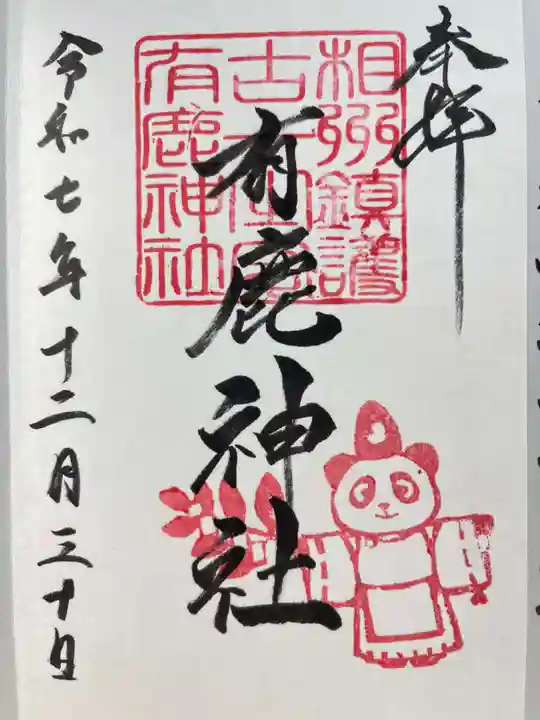 奉拝
相州鎮護
有鹿神社
有鹿神社
令和七年十二月三十日